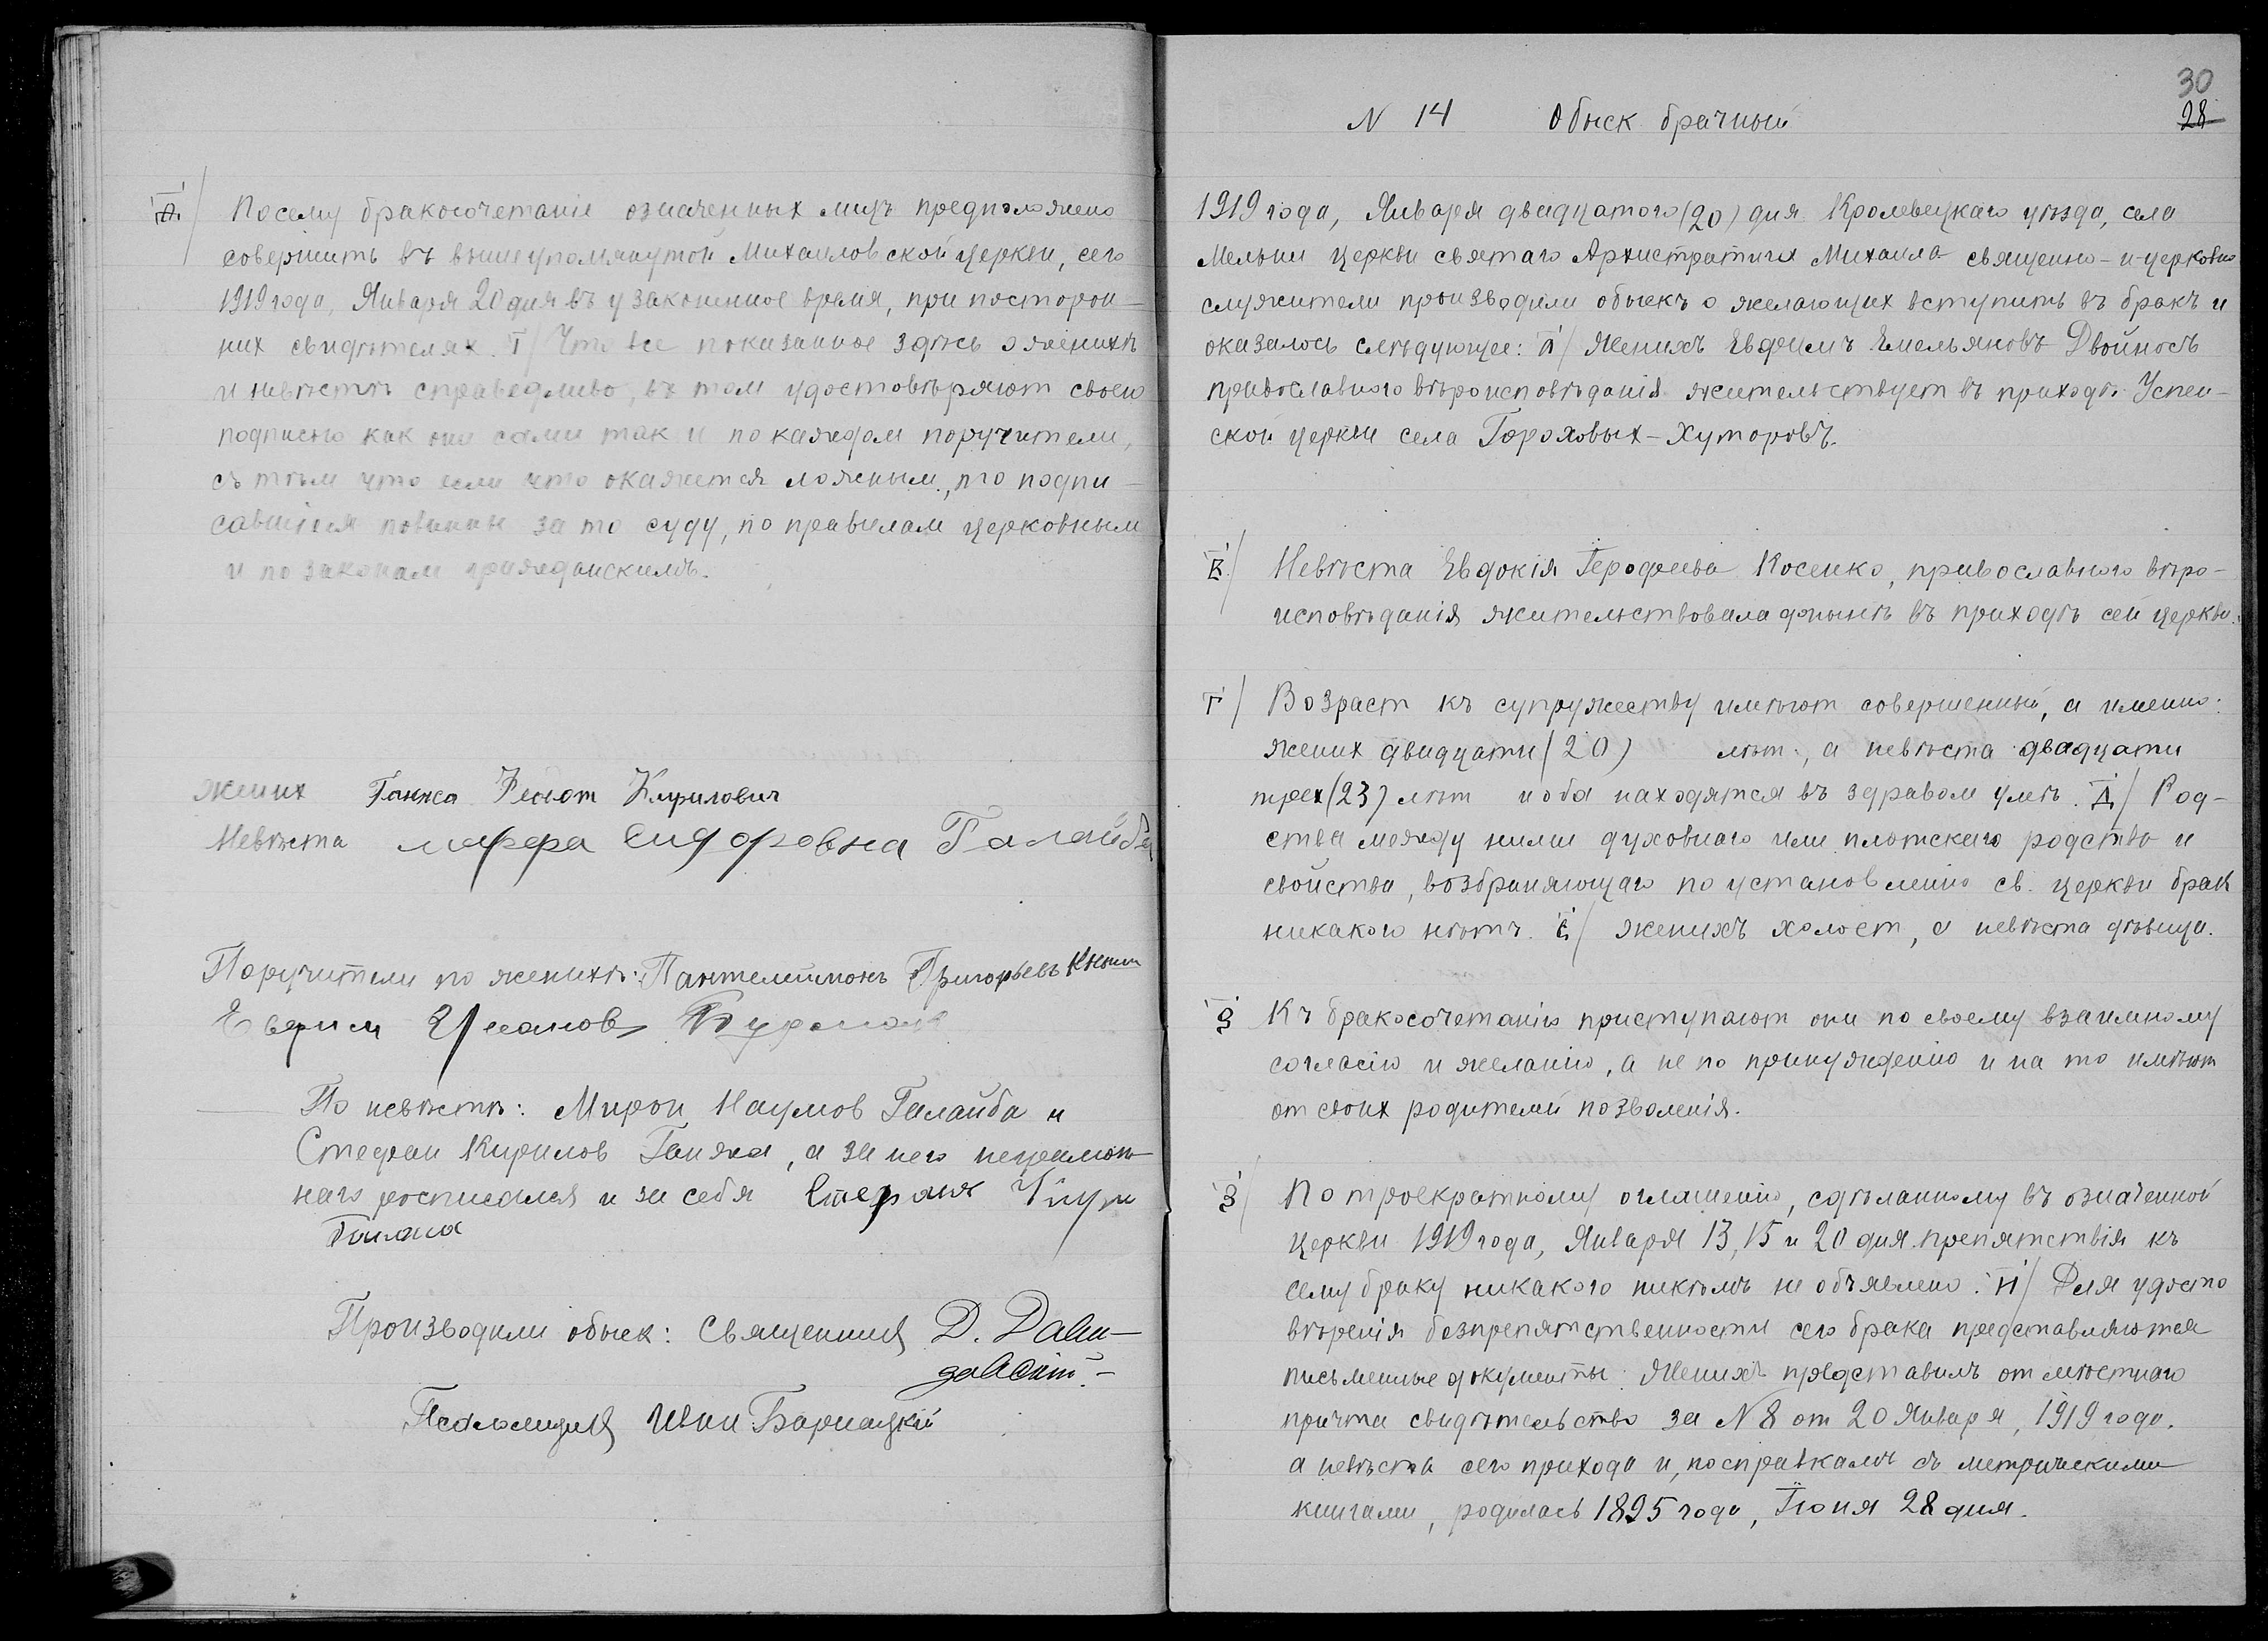 Ѳ/ Посему бракосочетаніе означенных лицъ предположено
совершить въ вышеупомянутой Михайловской церкви, сего
1919 года, Января 20 дня въ узаконенное время, при посторон-
них свидѣтелях. І/ Что все показанное здѣсь о женихѣ
и невѣстѣ справедливо, въ том удостовѣряют своею
подписью как они сами так и по каждом поручители,
съ тѣм что если что окажется ложным, то подпи-
савшіеся повинны за то суду, по правилам церковным
и по законам гражданскимъ.
Жених Ганжа Федот Кирилович
Невѣста марфа Сидоровна Галайба
Поручители по женихѣ: Пантелиимонъ Григорьевъ
Евфим Иванов
По невѣстѣ: Мирон Наумов Галайба и
Стефан Кирилов Ганжа, а за него неграмот-
наго росписался и за себя Стефан
Производили обыск: Священник Д. Дави-
довскій.-
Псаломщик Иван Барнацкій
30
28
N 14 Обыск брачный
1919 года, Января двадцатого (20) дня Кролевецкаго уѣзда, села
Мельни церкви святаго Архистратига Михаила священно-и-церковно
служители производили обыскъ о желающих вступить въ бракъ и
оказалось слѣдующее: а/ Женихъ Евфимъ Емельяновъ Двойносъ
православного вѣроисповѣданія жительствует въ приходѣ Успен-
ской церкви села Гороховых-Хуторовъ.
В/ Невѣста Евдокія Герофеева Косенко, православного вѣро-
исповѣданія жительствовала донынѣ въ приходѣ сей церкви.
Г/ Возраст къ супружеству имѣют совершенный, а именно:
жених двадцати (20) лѣт, а невѣста двадцати
трех (23) лѣт и оба находятся въ здравом умѣ. Д/ Род-
ства между ними духовнаго или плотскаго родства и
свойства, возбраняющаго по установленію св. церкви брак
никакого нѣтъ. Е/ женихъ холост, а невѣста дѣвица.
Ѕ Къ бракосочетанію приступают они по своему взаимному
согласію и желанію, а не по принужденію и на то имѣют
от своих родителей позволенія.
З/ По троекратному оглашенію, сдѣланному въ означенной
церкви 1919 года, Января 13, 15 и 20 дня препятствія къ
сему браку никакого никѣмъ не объявлено. И/ Для удосто
вѣренія безпрепятственности сего брака представляются
письменные документы: Женихъ представилъ от мѣстнаго
причта свидѣтельство за N 8 от 20 Января, 1919 года.
а невѣста сего прихода и, по справкамъ съ метрическими
книгами, родилась 1895 года, Іюня 28 дня.